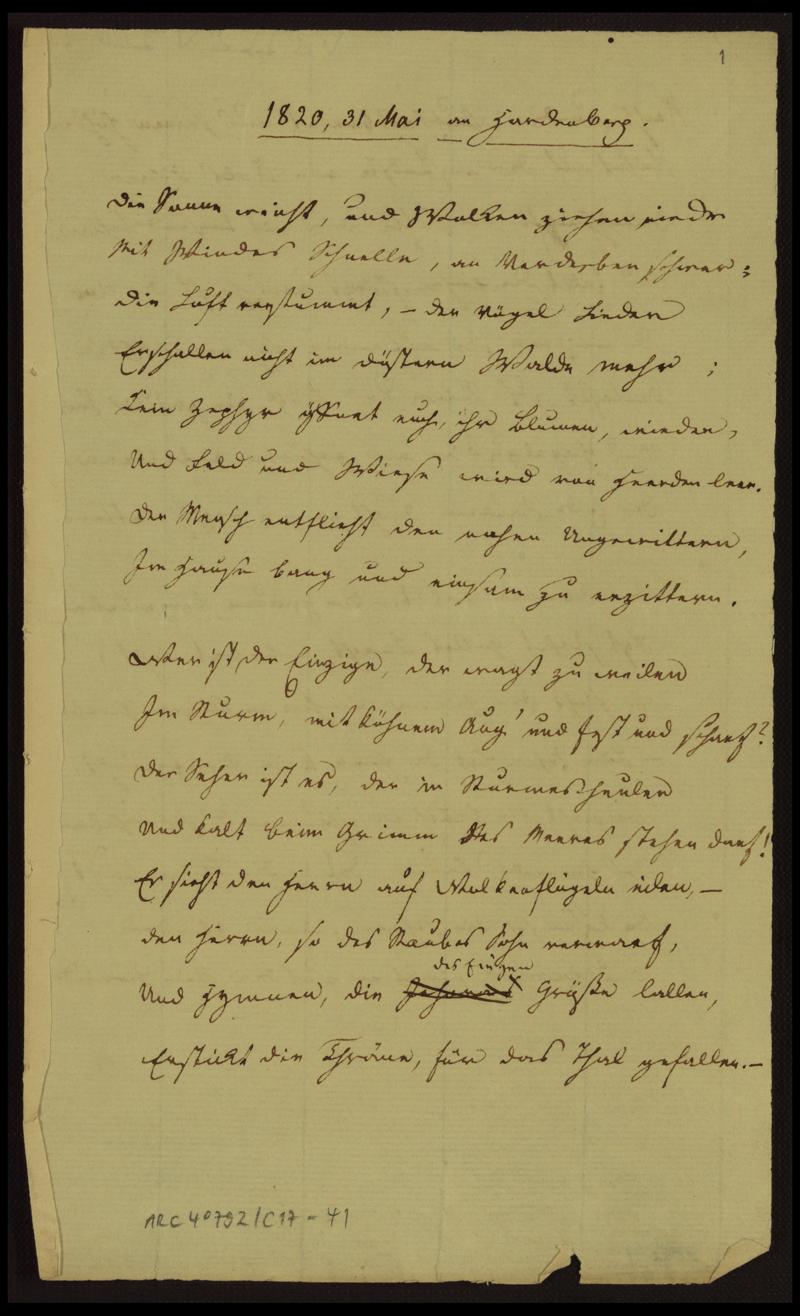 1
1820, 31 Mai an Hardenberg.
Die Sonne weicht, und Wolken ziehen nieder
Mit Windes Schnelle, an Verderben schwer;
Die Luft verstummt, – der Vögel Lieder
Erschallen nicht im düstern Walde mehr;
Kein Zephyr öffnet euch, ihr Blumen, wieder,
Und Feld und Wiese wird von Heerden leer.
Der Mensch entflieht den nahen Ungewittern,
Im Hause bang und einsam zu erzittern.
Wer ist der Einzige, der wagt zu weilen
Im Sturm, mit kühnem Aug' und fest und scharf?
Der Seher ist es, der im Sturmesheulen
Und kalt beim Grimm des Meeres stehen darf!
Er sieht den Herrn auf Wolkenflügeln eilen, –
den Herrn, so des Staubes Sohn verwarf,
des Einzgen
Und Hymnen, die Jehovas Größe lallen,
Erstickt die Thräne, für das Thal gefallen. –
ARC 4° 792/C17-41